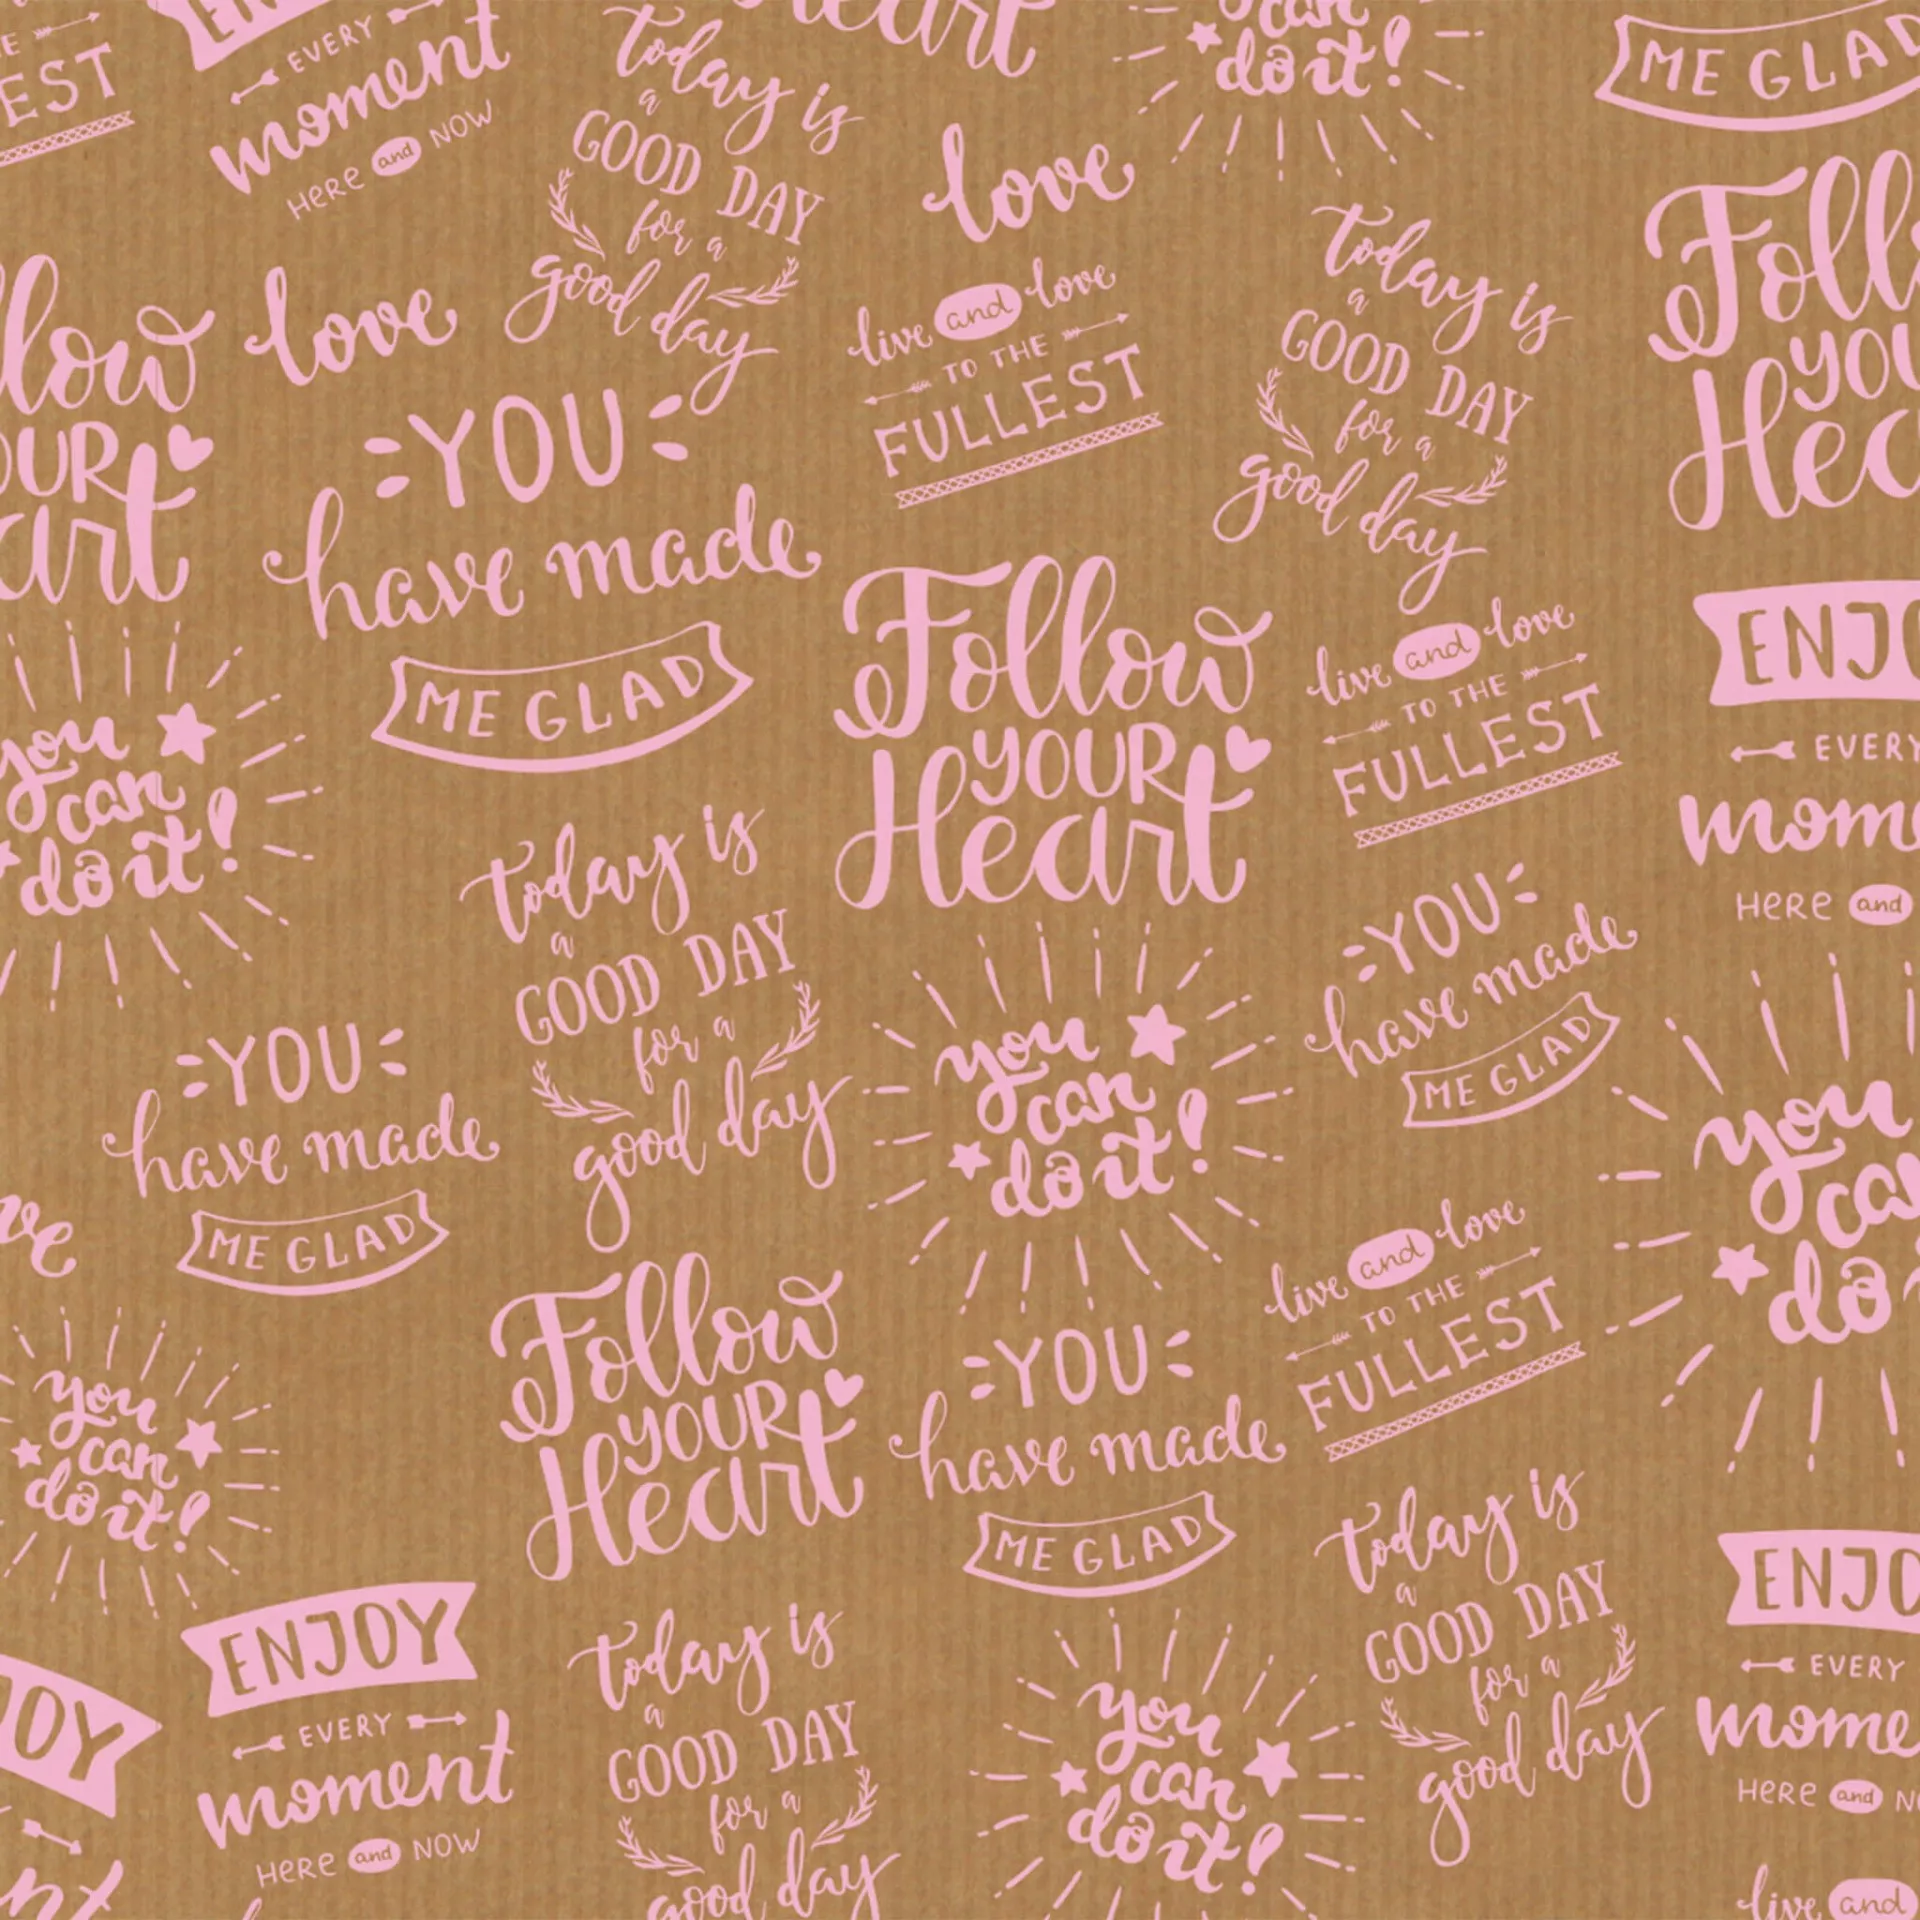 EST
EVERY
moment
HERE and NOW
today is
a
GOOD DAY
for a
good day
Heart
can
do it!
ME GLAD
love
live and love
TO THE
FULLEST
today is
a
GOOD DAY
for a
good day
Foll
YOU
Hea
llow
OUR
art
love
YOU
have made
ME GLAD
Follow
YOUR
Heart
live and love
TO THE
FULLEST
ENJO
EVERY
mome
HERE and
you
can
do it!
today is
a
GOOD DAY
for a
good day
you
can
do it!
YOU
have made
ME GLAD
YOU
have made
ME GLAD
ve
live and love
TO THE
FULLEST
you
ca
do
you
can
do it!
Follow
YOUR
Heart
YOU
have made
ME GLAD
today is
a
GOOD DAY
for a
good day
ENJO
EVERY
mome
HERE and N
OY
nt
ENJOY
EVERY
moment
HERE and NOW
today is
a
GOOD DAY
for a
good day
you
can
do it!
live and